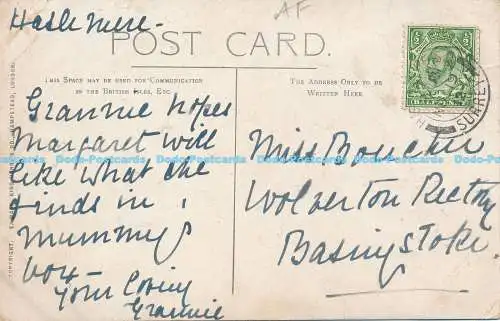 Haslemere -
AF
POST CARD.
THIS SPACE MAY BE USED FOR COMMUNICATION
IN THE BRITISH ISLES, ETC.
THE ADDRESS ONLY TO BE
WRITTEN HERE.
Grannie hopes
Margaret will
like what she
finds in
Mummy's
box -
Your loving
Grannie
Miss Boucher
Wolverton Rectory
Basingstoke.
SURREY
Dodo-Postcards Dodo-Postcards Dodo-Postcards Dodo-Postcards